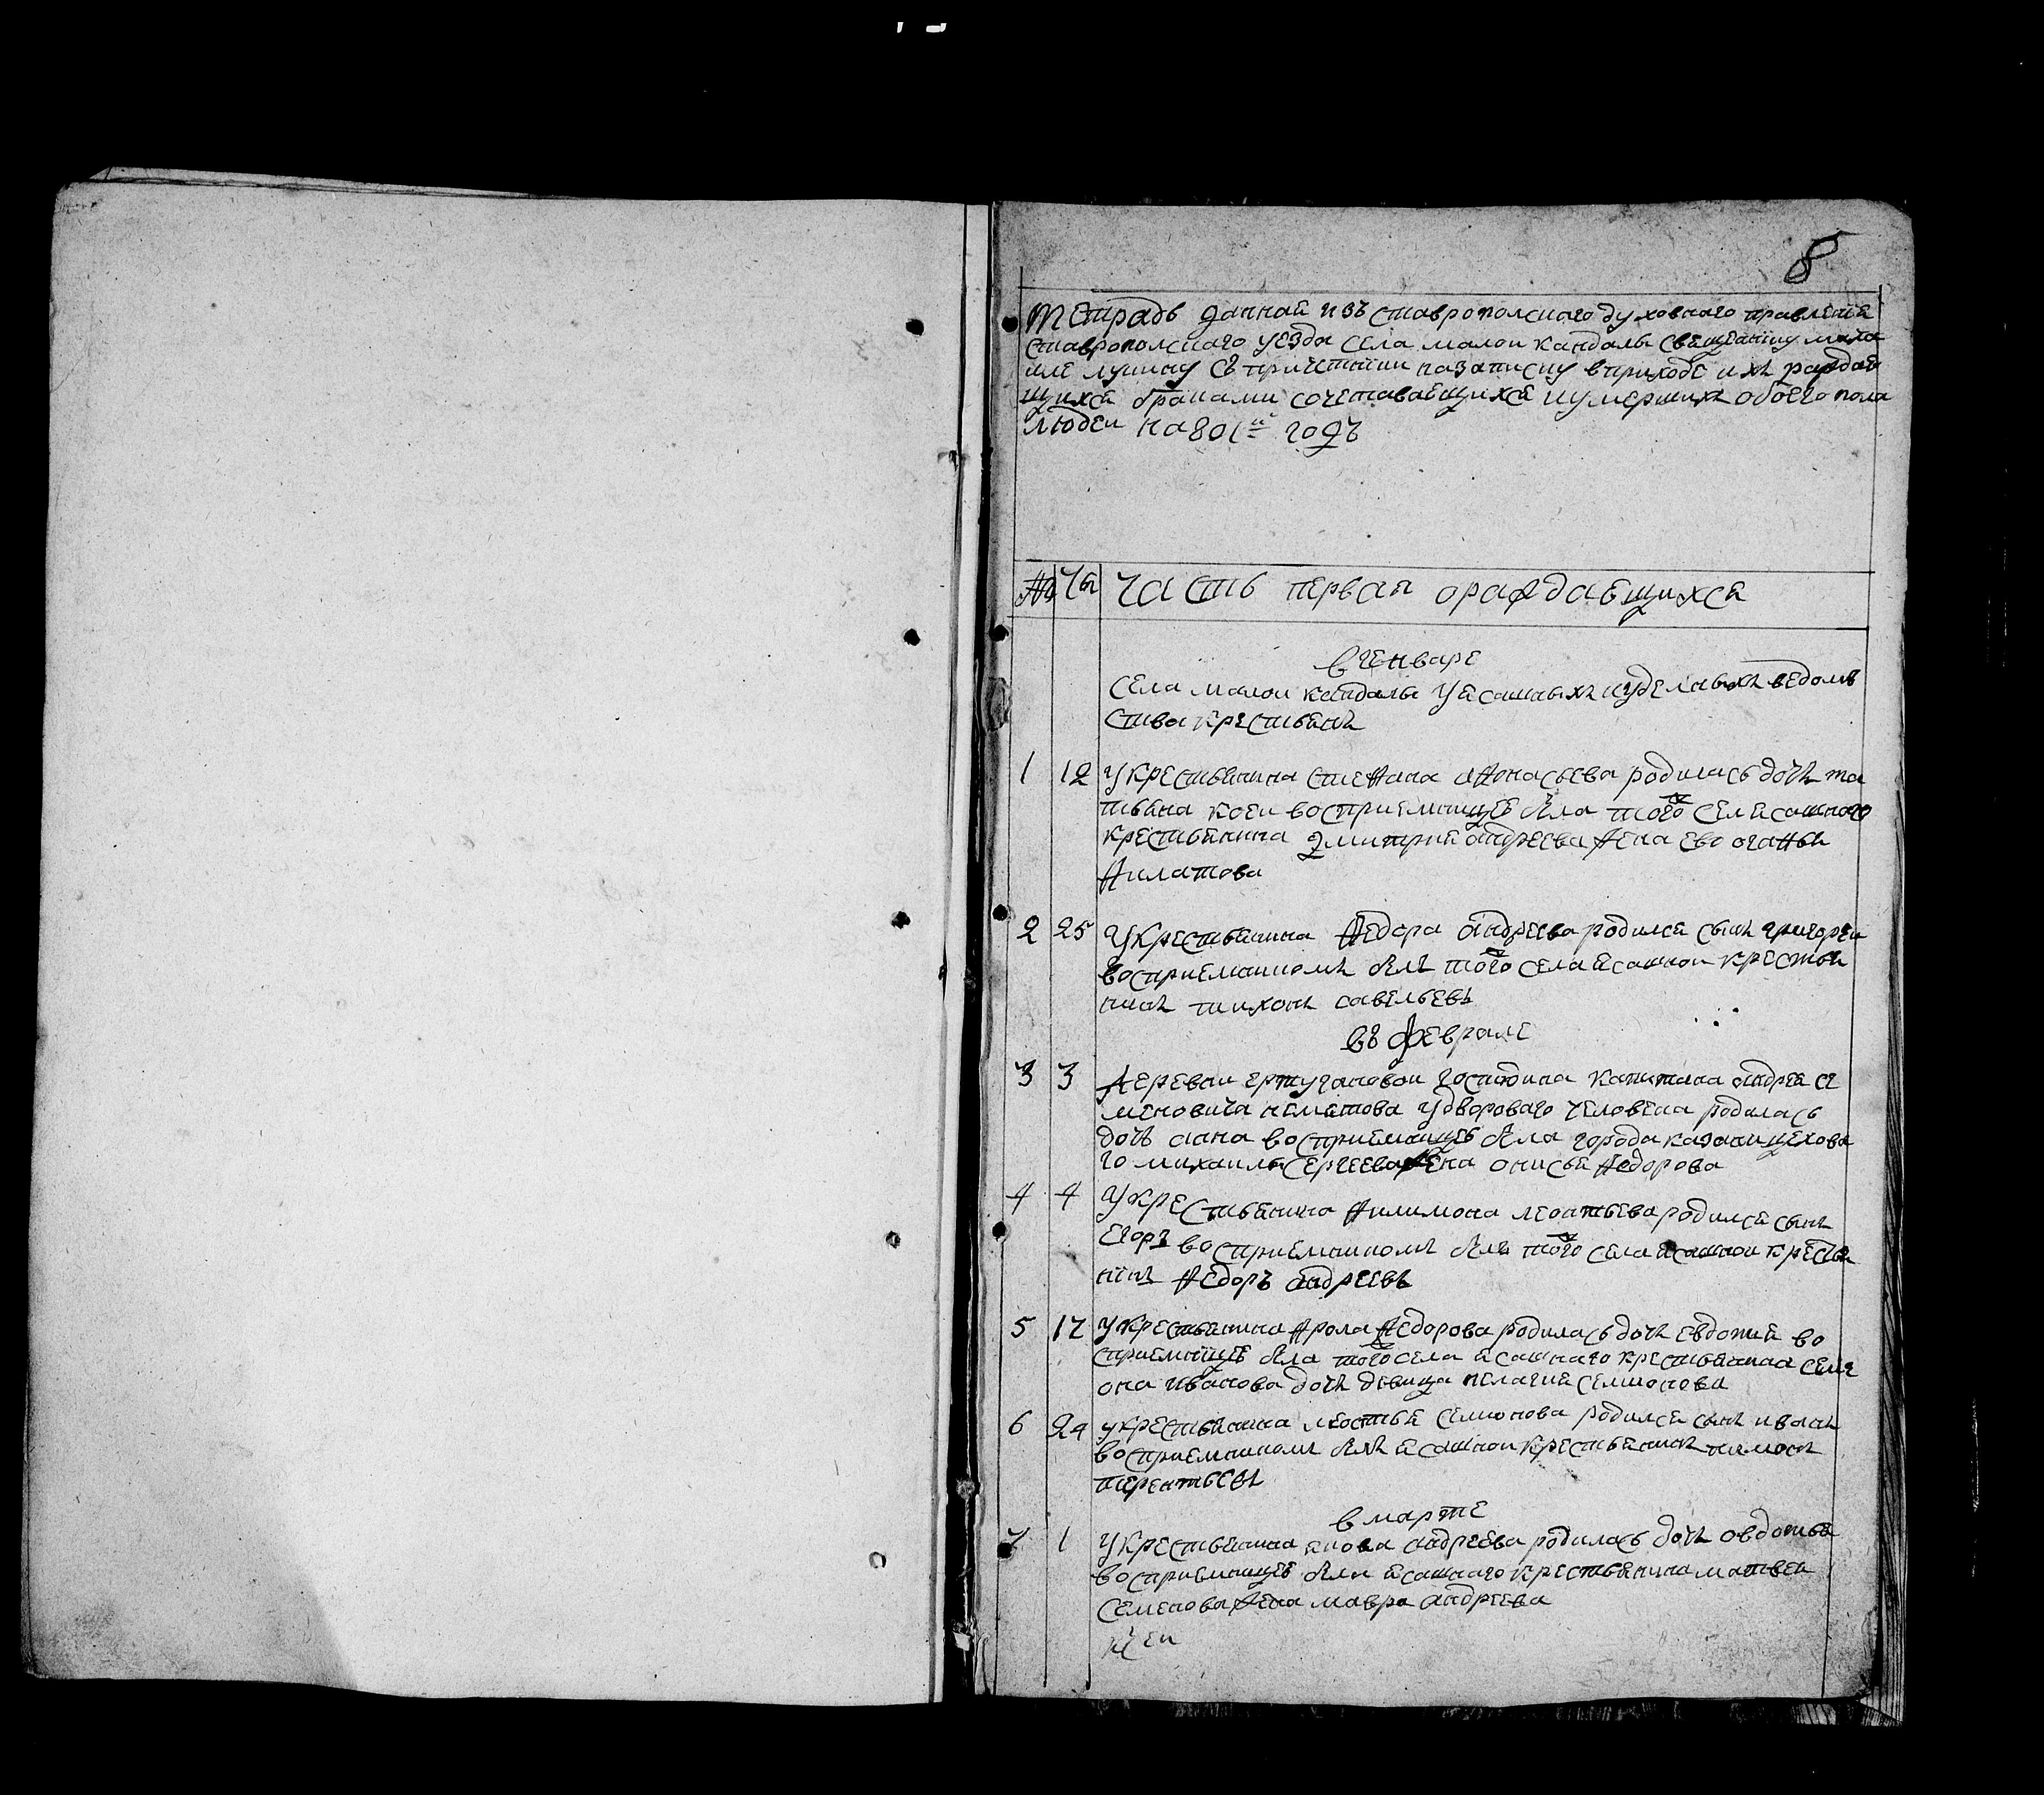 8
Тетрадь данная изъ ставрополскаго духовнаго правления
ставрополскаго уезда села малои кандалы священнику миха
иле лукину съ причетники на записку в приходе ихъ раждаю
щихся браками сочетавающихся и умершихъ обоего пола
людеи на 801й годъ
№ Чи часть первая о раждающихся
в генваре
села малои кандалы уясашныхъ и уделныхъ ведомъ
ства крестьянъ
1 12 у крестьянина стефана афонасьева родилась дочь та
тьяна коеи восприемницею была того ж села ясашного
крестьянина дмитрия андреева жена ево агафья
филатова
2 25 у крестьянина федора андреева родился сынъ григореи
восприемникомъ былъ того ж села ясашнои крестья
нинъ тихонъ савельевъ
въ феврале
3 3 деревни ертугановои господина капитана андрея се
меновича у двороваго человека родилась
дочь анна восприемницею была города казани цехова
го михаилы сергеева жена онисья федорова
4 4 у крестьянина филимона леонтьева родился сынъ
егоръ восприемникомъ былъ того ж села ясашнои крестья
нинъ федоръ андреевъ
5 17 у крестьянина фрола федорова родилась дочь евдокия во
сприемницею была того ж села ясашнаго крестьянина семи
она иванова дочь девица пелагия семионова
6 24 у крестьянина леонтья семионова родился сынъ иванъ
восприемникомъ былъ ясашнои крестьянинъ
терентьевъ
в марте
7 1 у крестьянина якова андреева родилась дочь овдотья
восприемницею была ясашнаго крестьянина матвея
семенова жена мавра андреева